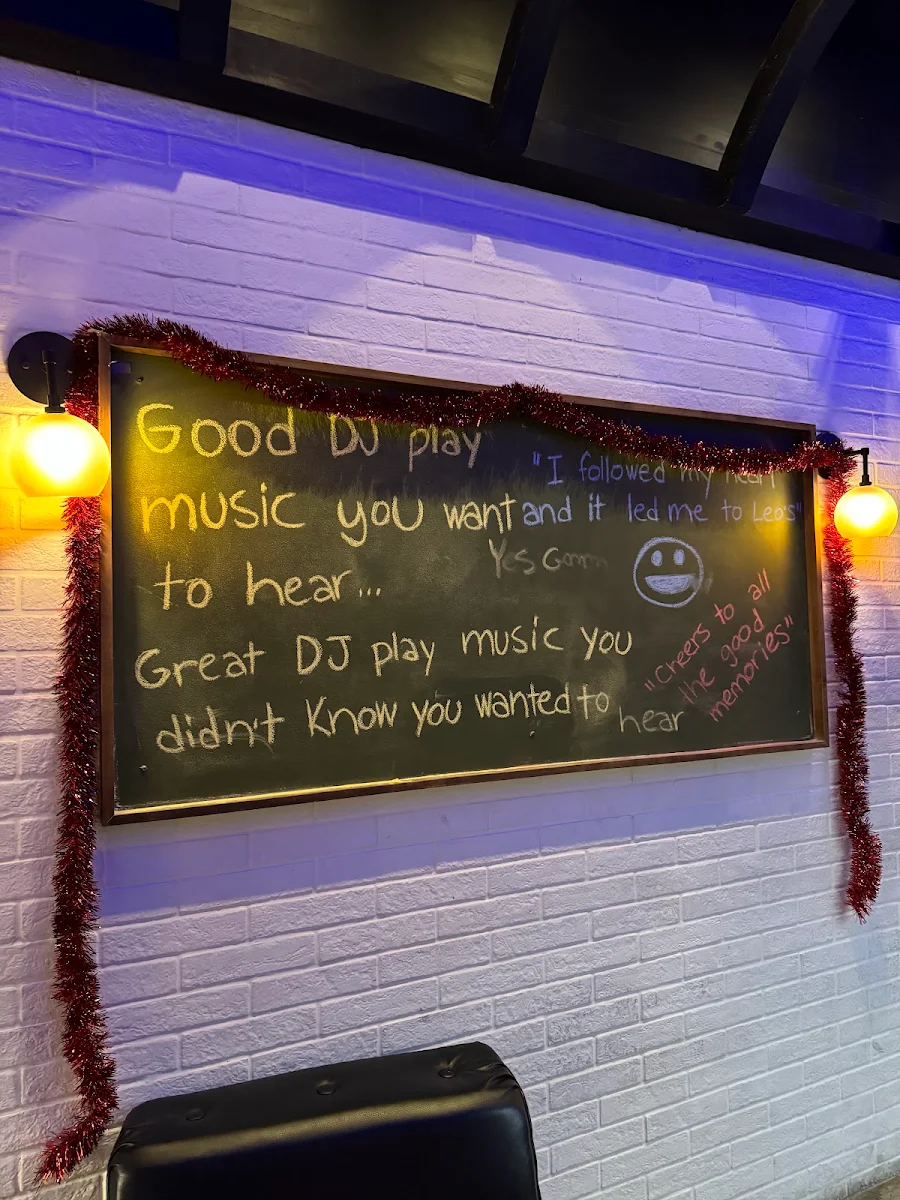 Good DJ play
music you want
to hear...
Great DJ play music you
didn't know you wanted to
hear
"I followed my heart
and it led me to Leo's"
Yes
"Cheers to all
the good
memories"